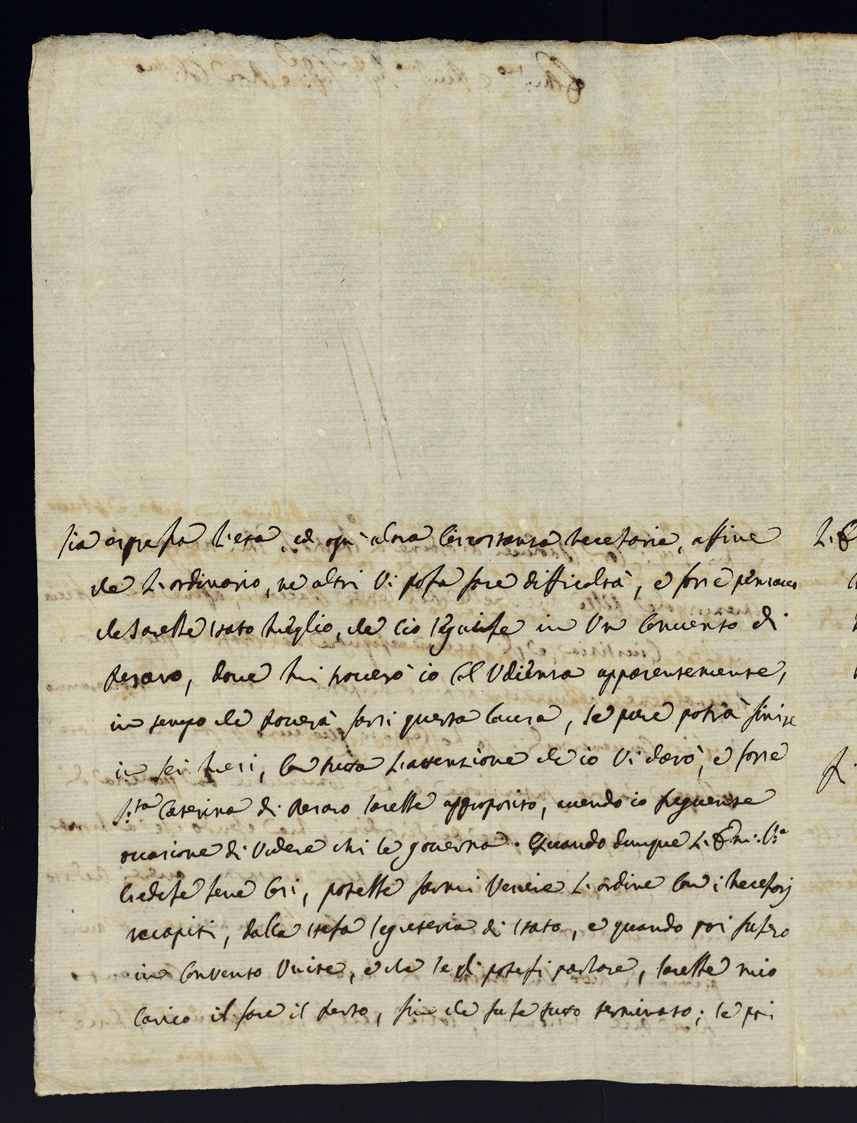 sia espressa l'età, ed ogn'altra circostanza necessaria, affine
che l'ordinario, ne altri vi possa fare difficoltà, e forse
che sarebbe stato meglio, che ciò seguisse in un Convento di
Pesaro, dove mi troverò io coll'Udienza apparentemente,
in tempo che dovrà farsi questa causa, se pure potrà finire
in sei mesi, con tutta l'attenzione che io vi darò, e forse
S.ta Caterina di Pesaro sarebbe approposito, avendo io frequente
occasione di vedere chi le governa. Quando dunque L'Em: V.a
credesse bene così, potrebbe farmi venire l'ordine con i necessarj
recapiti, dalla stessa segreteria di stato, e quando poi fussero
in Convento unite, e che le si potessi parlare, sarebbe mio
carico il fare il resto, sin che fusse tutto terminato; se poi